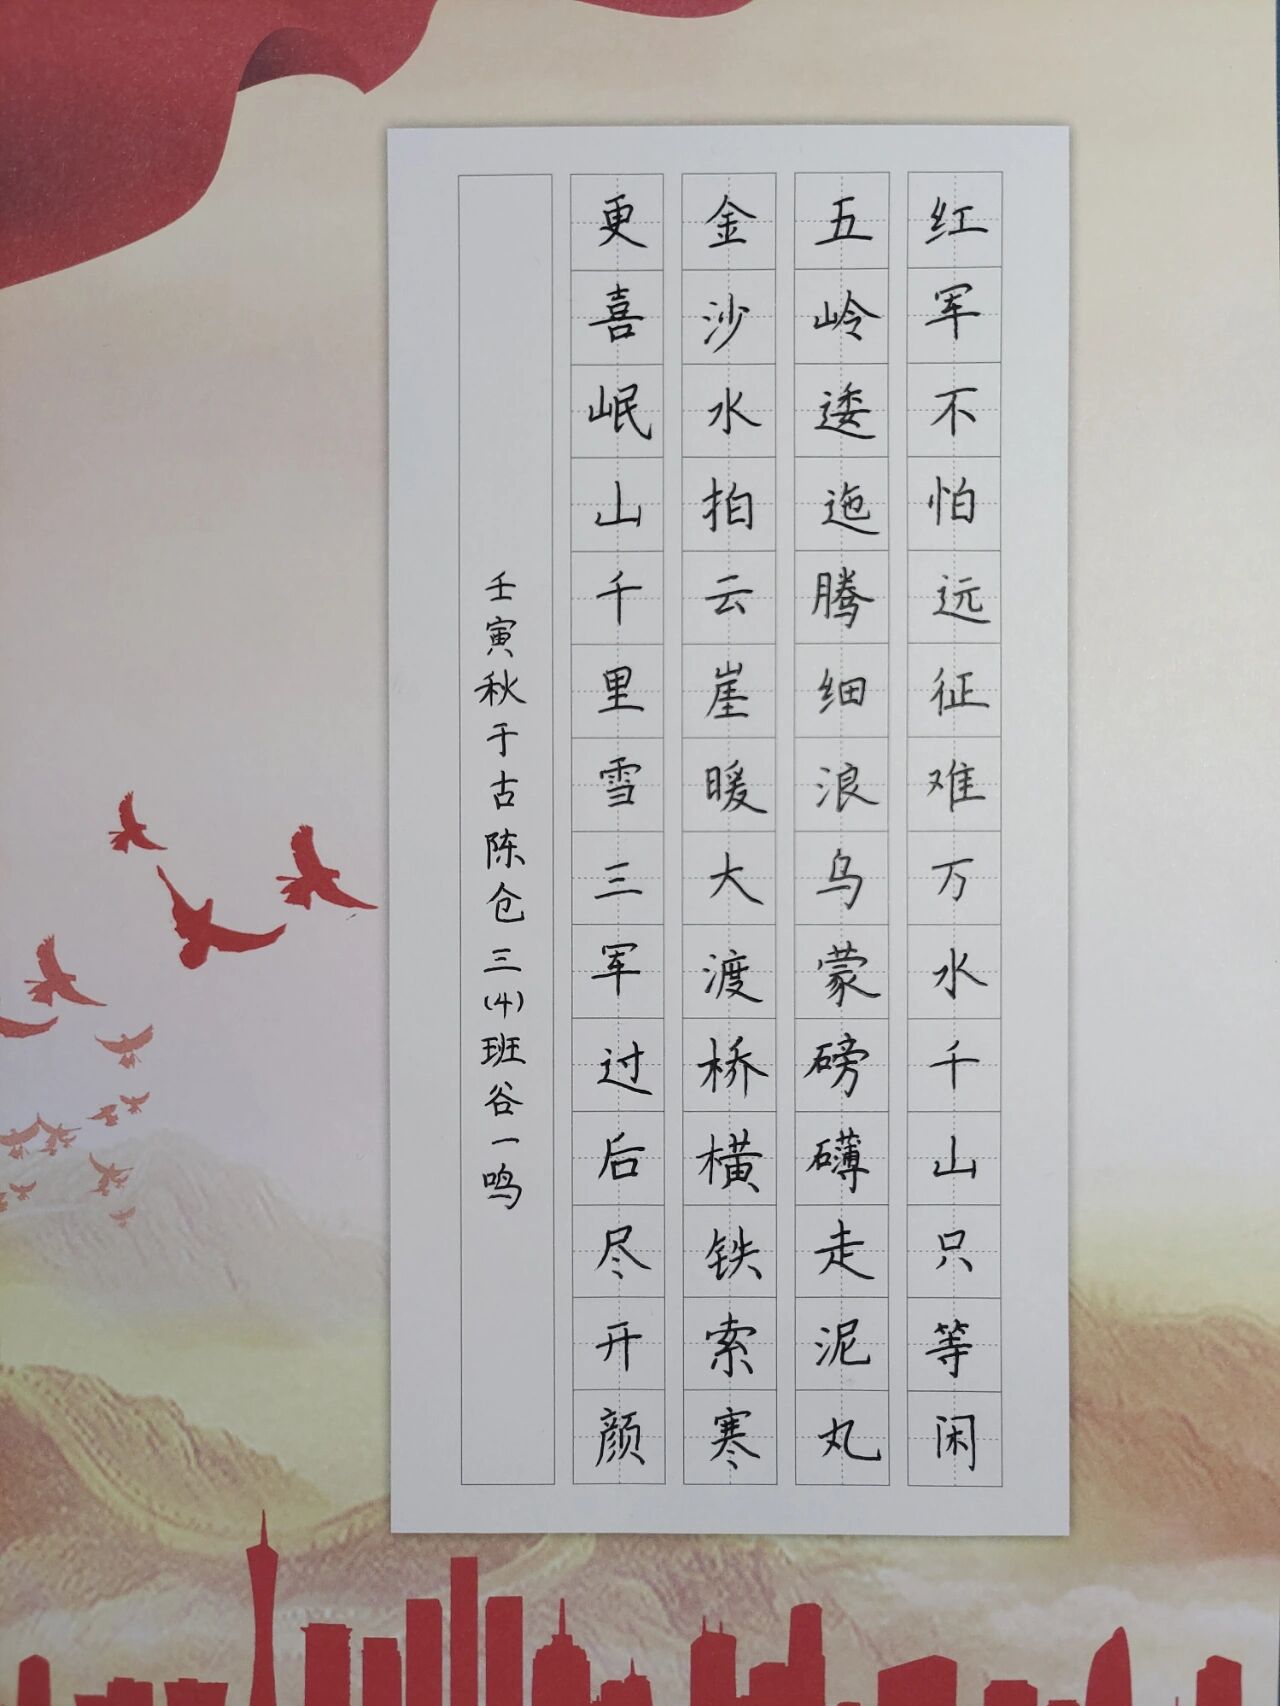 红军不怕远征难万水千山只等闲
五岭逶迤腾细浪乌蒙磅礴走泥丸
金沙水拍云崖暖大渡桥横铁索寒
更喜岷山千里雪三军过后尽开颜
壬寅秋于古陈仓三(4)班谷一鸣